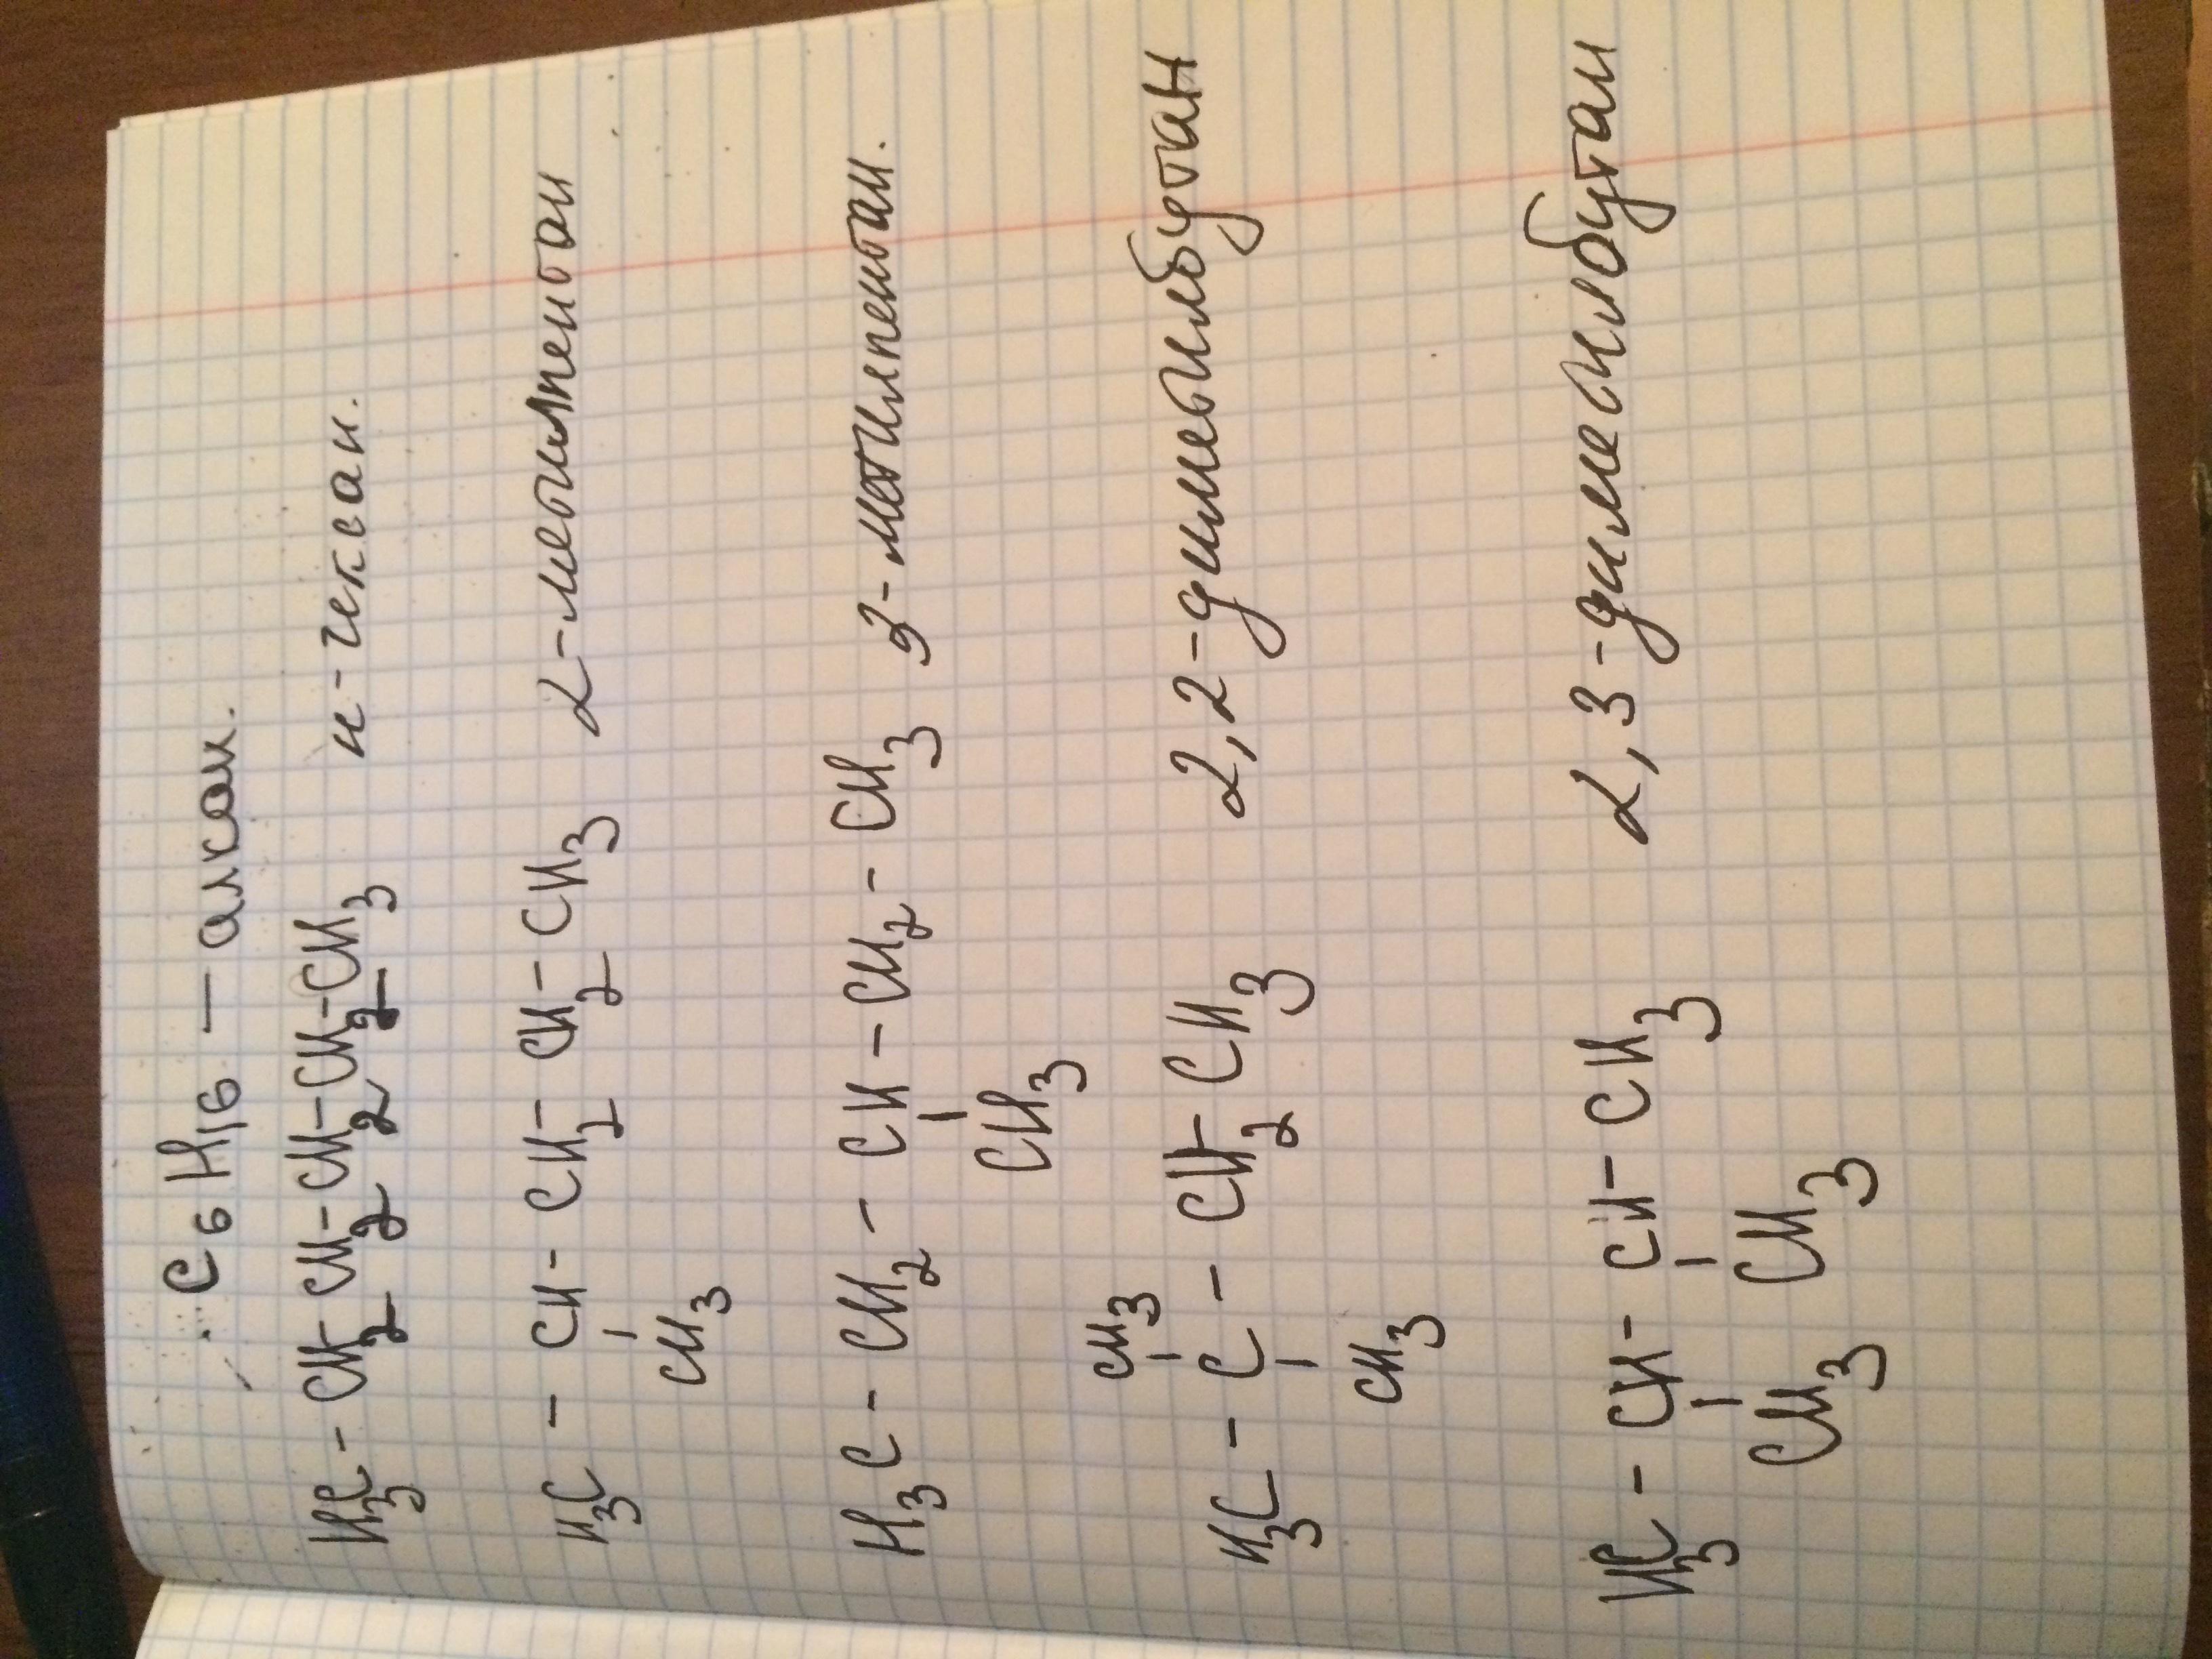 C₆H₁₆ — алкан.
H₃C - CH₂ - CH₂ - CH₂ - CH₂ - CH₃ н-гексан.
H₃C - CH - CH₂ - CH₂ - CH₃ 2-метилпентан
CH₃
H₃C - CH₂ - CH - CH₂ - CH₃ 3-метилпентан.
CH₃
CH₃
H₃C - C - CH₂ - CH₃ 2,2-диметилбутан
CH₃
H₃C - CH - CH - CH₃ 2,3-диметилбутан
CH₃ CH₃